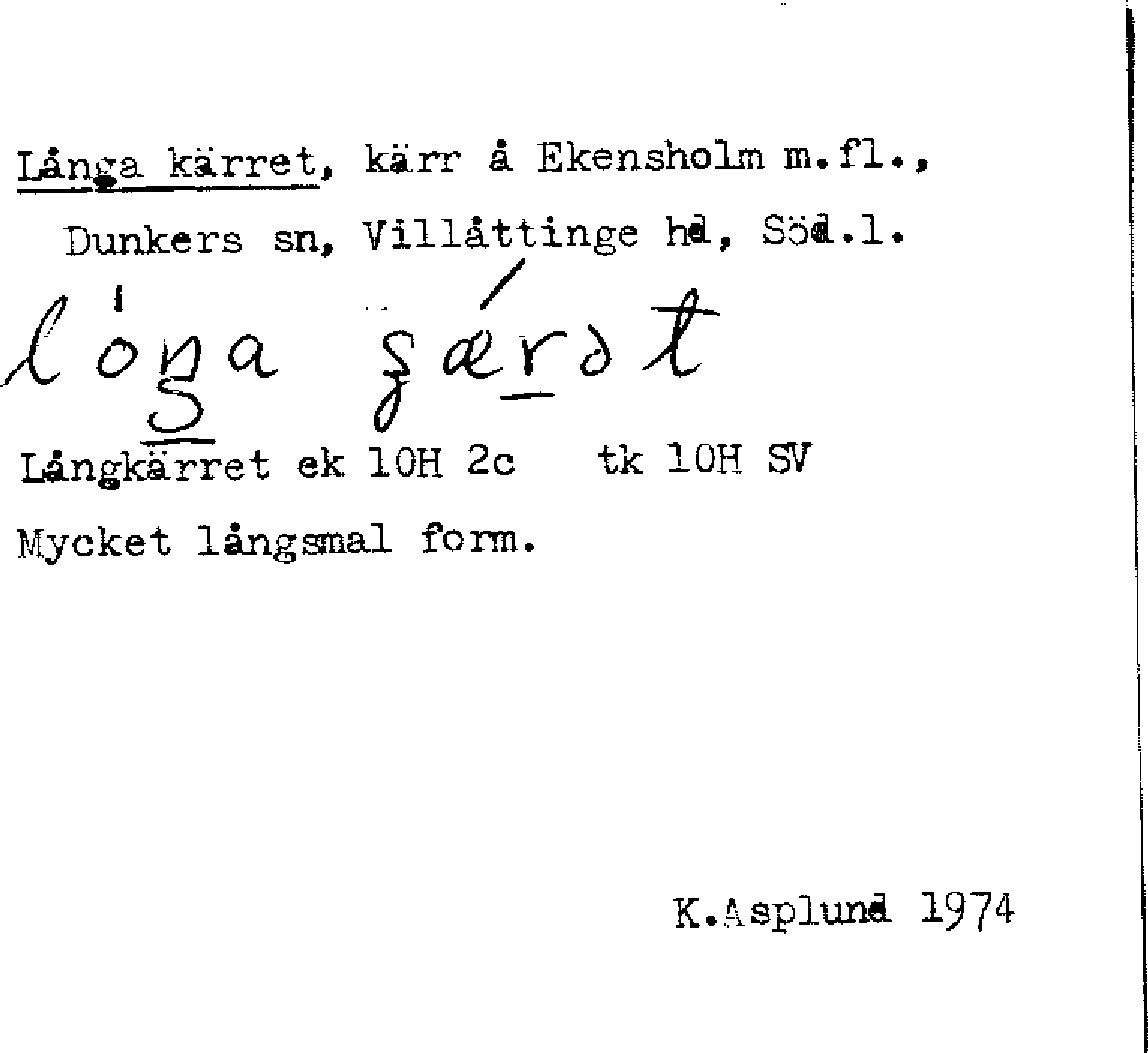 Långa kärret, kärr å Ekensholm m.fl.,
Dunkers sn, Villåttinge hd, Söd.l.
Långkärret ek 10H 2c tk 10H SV
Mycket långsmal form.
K.Asplund 1974